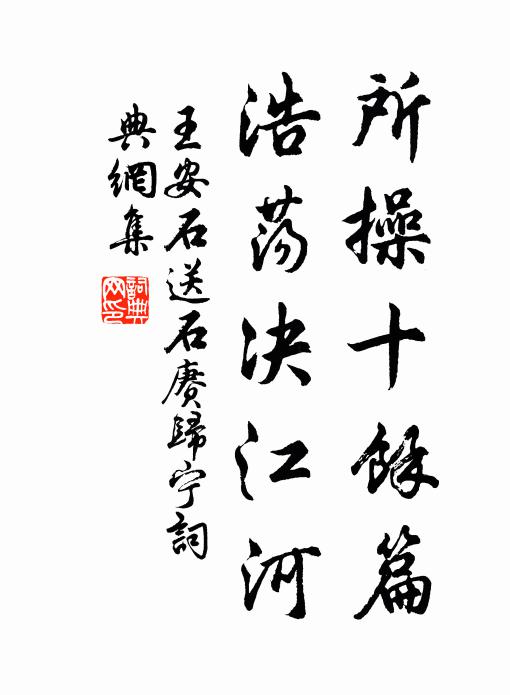 所操十餘篇
浩蕩决江河
王安石送石賡歸宁詞
典網集
詞典网印